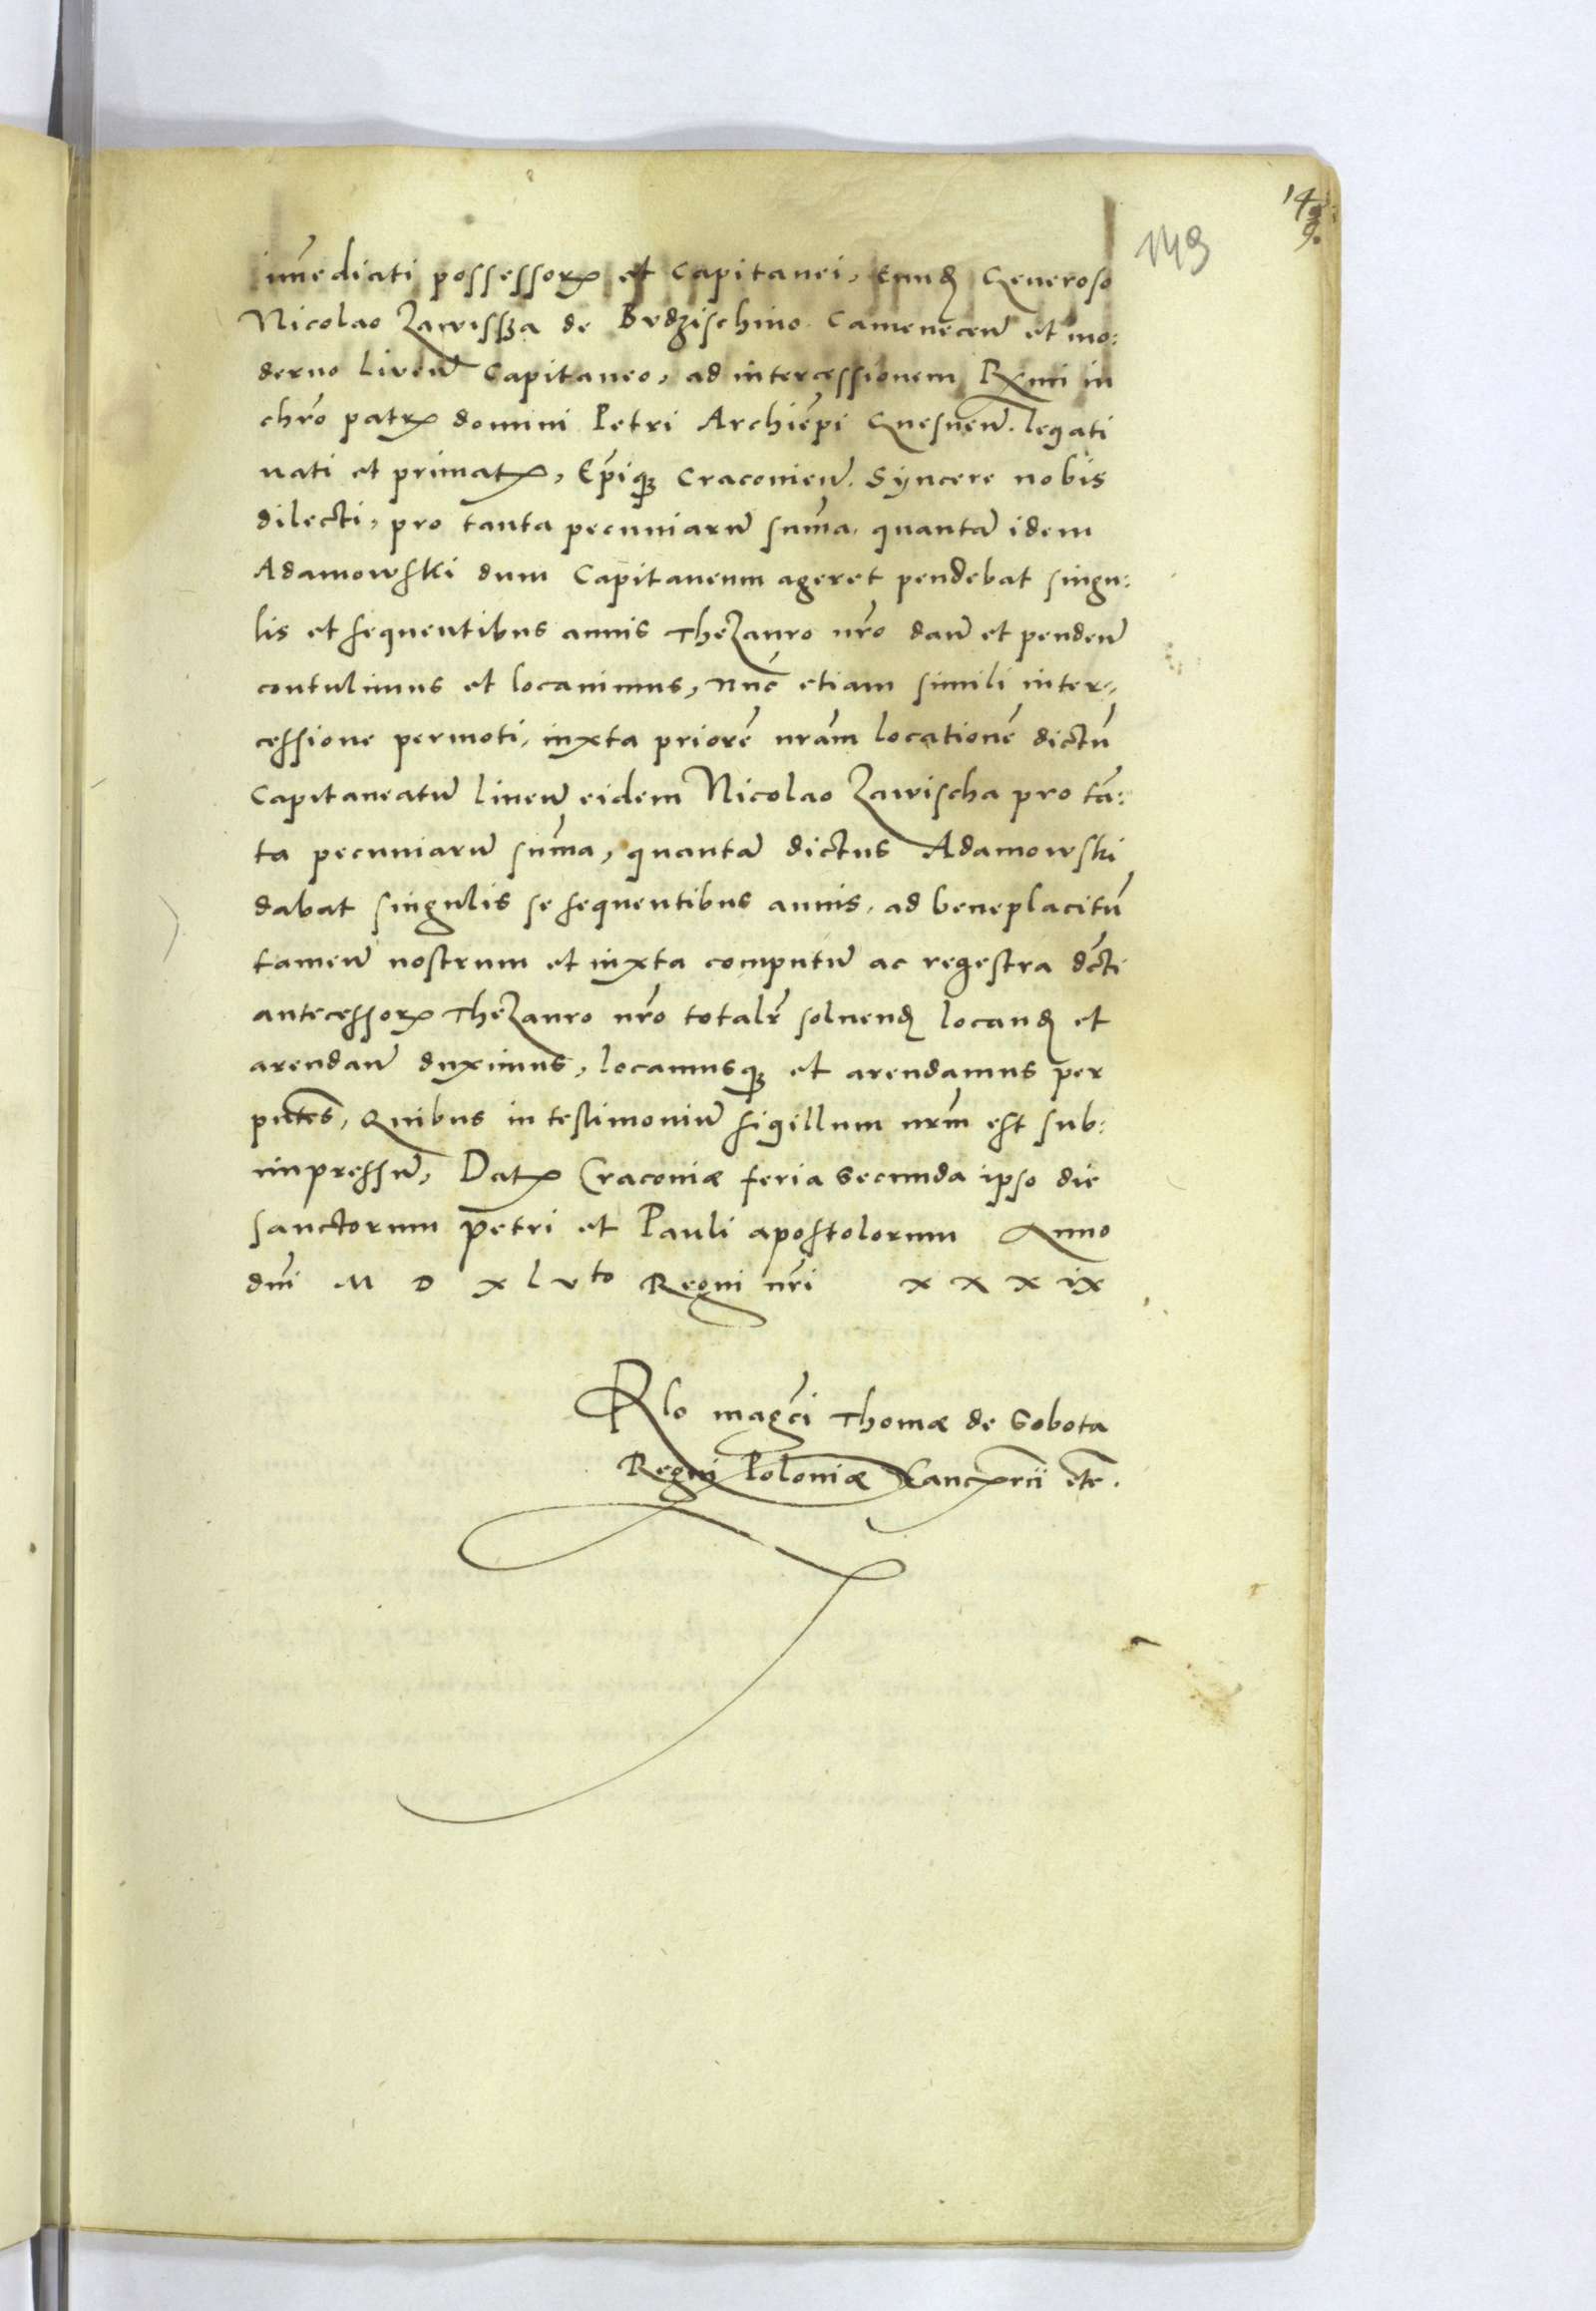 149
149
im̄ediati possessor̄ et Capitanei, Eund̄ Generoso
Nicolao Zawissza de Budzischino Camenecen̄ et mo:
derno Liven̄ Capitaneo, ad intercessionem Rx̄mi in
chr̄o patr̄ domini Petri Archiēpi Gnesnen̄. legati
nati et primat̄, Ep̄iqꝫ Cracovien̄. Syncere nobis
dilecti, pro tanta pecuniarū sum̄a, quantā idem
Adamowski dum Capitaneum ageret pendebat singu:
lis et sequentibus annis Thezauro nr̄o dan̄ et penden̄
contulimus et locavimus, nūc etiam simili inter,,
cessione permoti, iuxta priorē nrām locationē dictū
Capitaneatū Liven̄ eidem Nicolao Zawischa pro tā:
ta pecuniarū sum̄a, quantā dictus Adamowski
dabat singulis se sequentibus annis, ad beneplacitū
tamen̄ nostrum et iuxta computū ac regestra dc̄ti
antecessor̄ Thezauro nr̄o totalr̄ solvend̄ locand̄ et
arendan̄ duximus, locamusqꝫ et arendamus per
pn̄tes, Quibus in testimoniū sigillum nrm̄ est sub:
impressū, Dat̄ Cracoviæ feria secunda ipso die
sanctorum Petri et Pauli apostolorum Anno
dn̄i M D x l v to Regni nr̄i x x x ix
Rlo maḡci Thomæ de Sobota
Regni Poloniæ Canc̄rii etc̄.